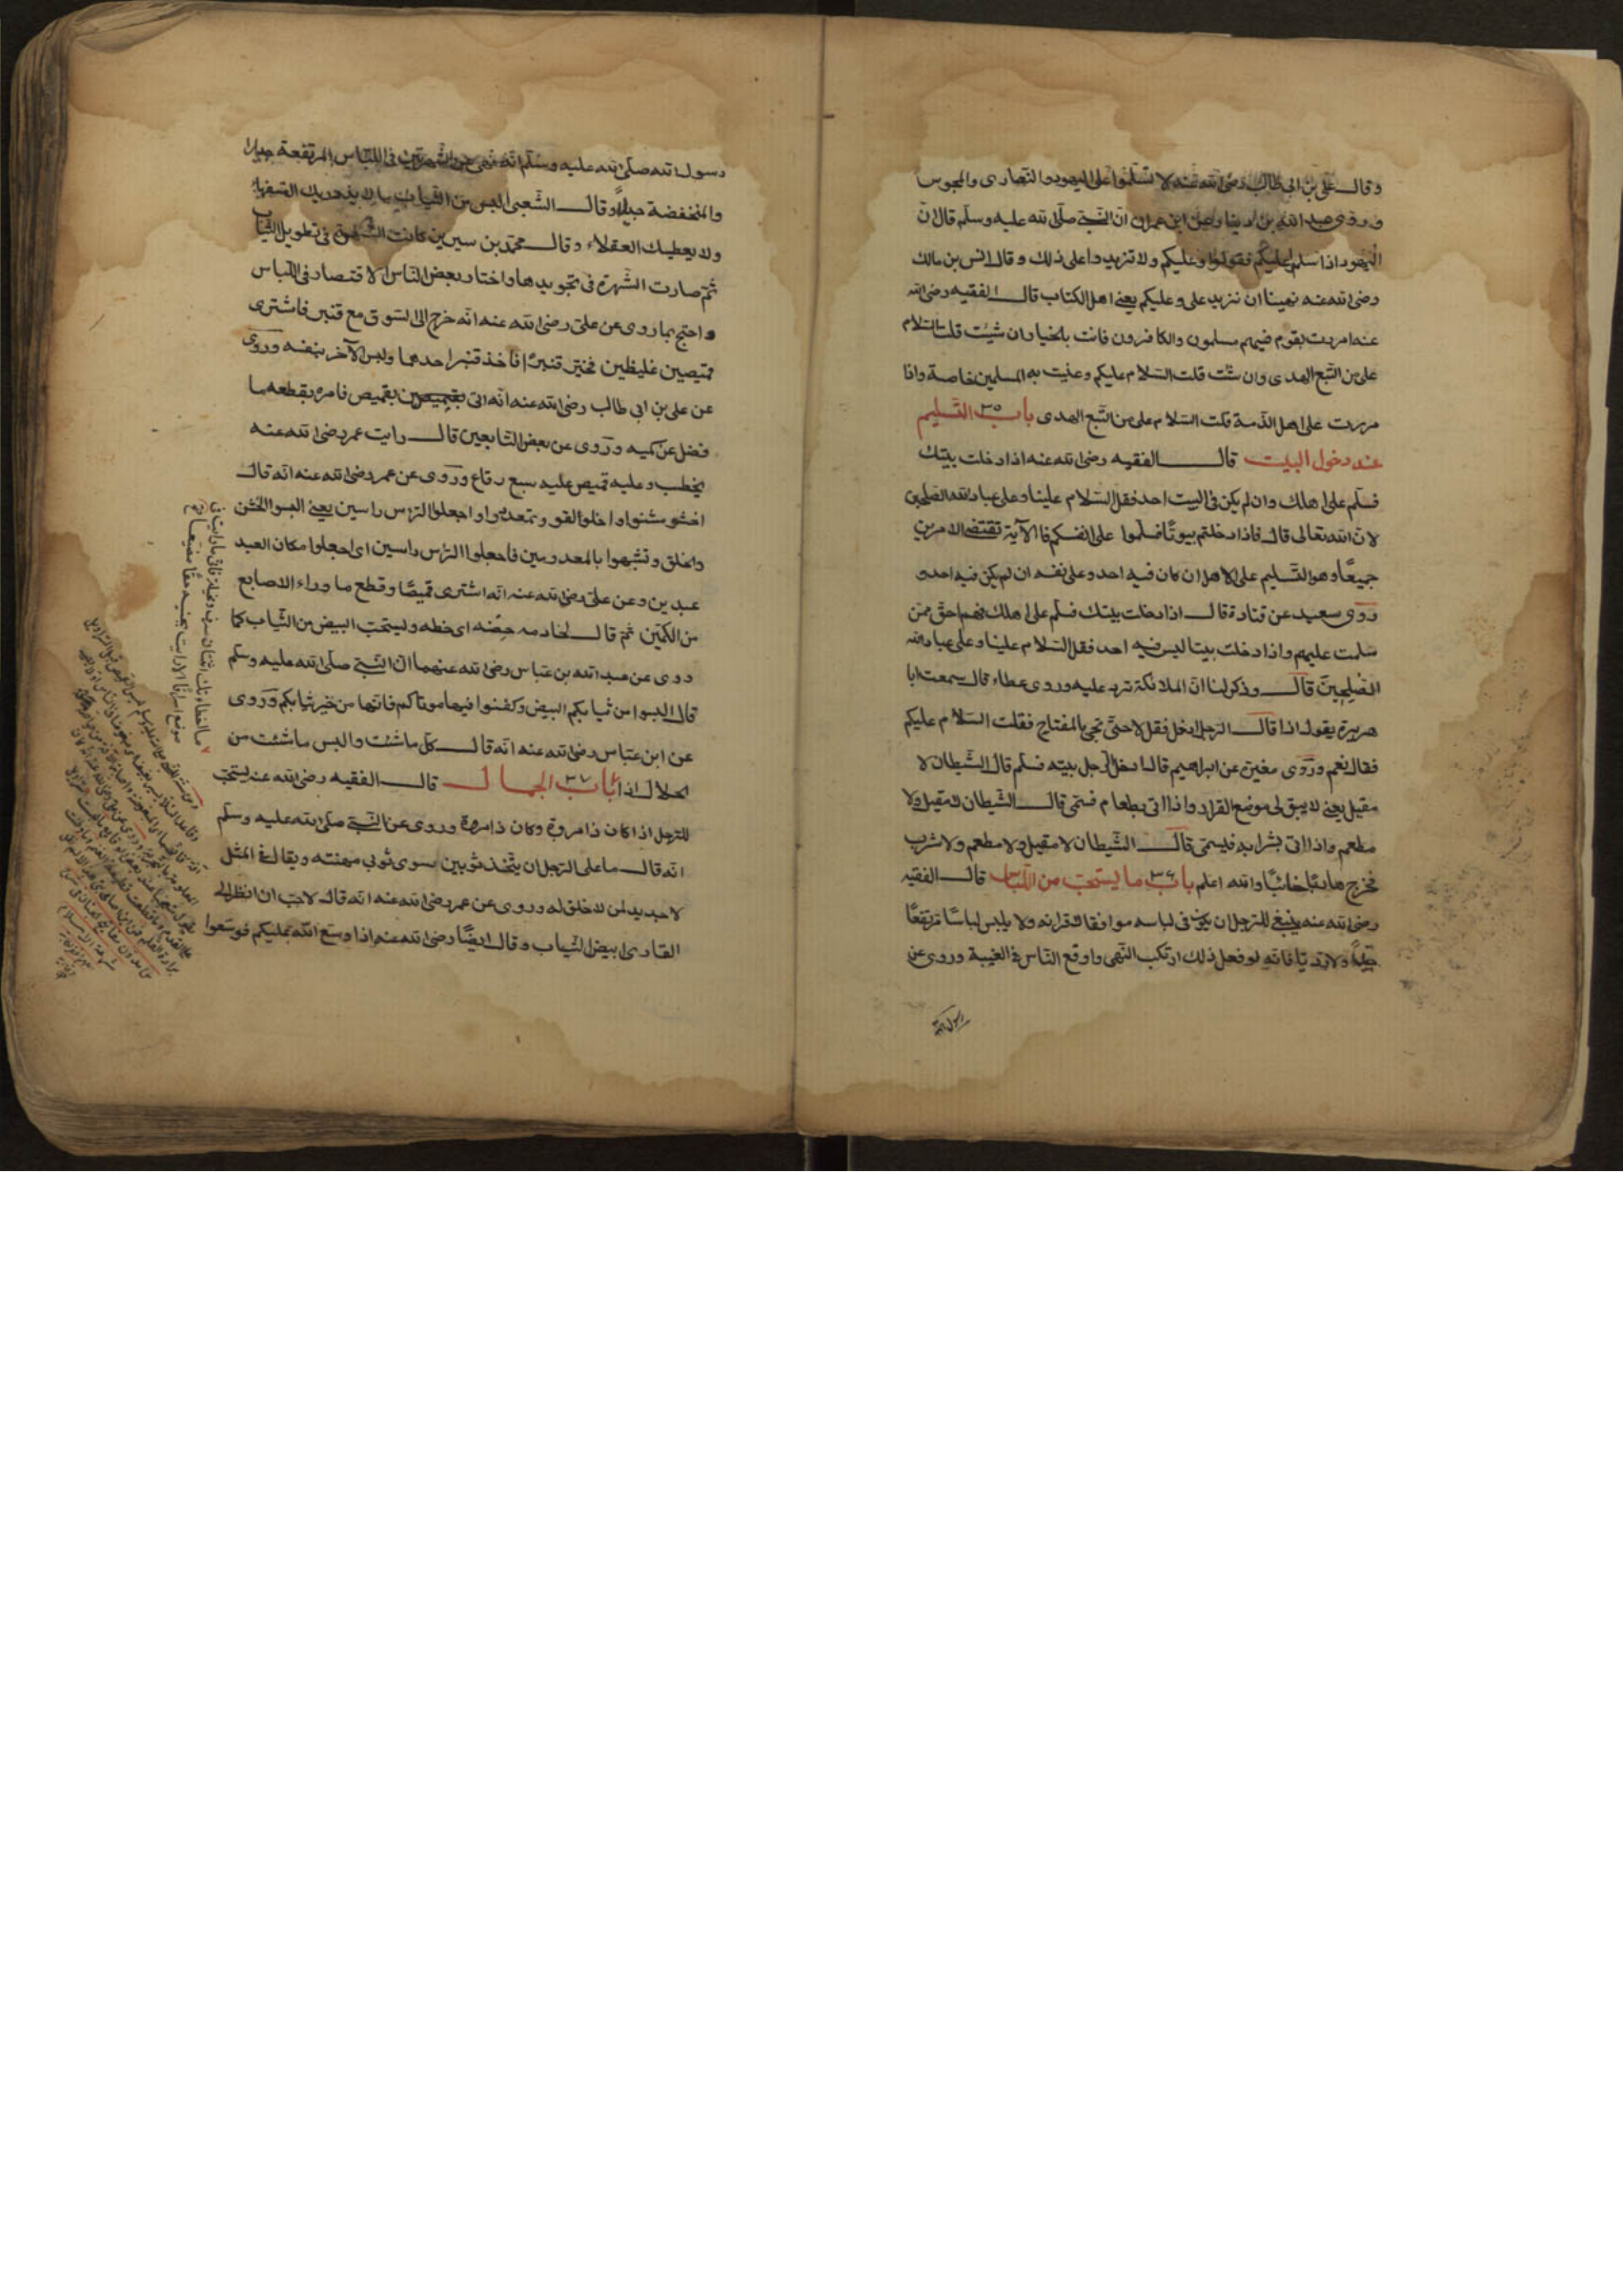 وقال على بن ابى طالب رضى الله عنه لا تسلّموا على اليهود والنّصارى والمجوس
وروى عبد الله بن دينار عن ابن عمر ان النّبىّ صلّى الله عليه وسلّم قال انّ
اليهود اذا سلم عليكم فقولوا وعليكم ولا تزيدوا على ذلك وقال انس بن مالك
رضى الله عنه نهينا ان نزيد على وعليكم يعنى اهل الكتاب قال الفقيه رضى الله
عنه اذا مررت بقوم فيهم مسلمون والكافرون فانت بالخيار ان شئت قلت السّلام
على من اتّبع الهدى وان شئت قلت السّلام عليكم وعنيت به المسلمين خاصة واذا
مررت على اهل الذّمة قلت السّلام على من اتّبع الهدى باب ٣٥ التّسليم
عند دخول البيت قال الفقيه رضى الله عنه اذا دخلت بيتك
فسلّم على اهلك وان لم يكن فى البيت احد فقل السّلام علينا وعلى عباد الله الصّلحين
لانّ الله تعالى قال فاذا دخلتم بيوتًا فسلّموا على انفسكم فالآية تقتضى الامرين
جميعًا وهو التّسليم على الاهل ان كان فيه احد وعلى نفسه ان لم يكن فيه احد و
روى سعيد عن قتادة قال اذا دخلت بيتك فسلّم على اهلك فهم احق ممّن
سلمت عليهم واذا دخلت بيتا ليس فيه احد فقل السّلام علينا وعلى عباد الله
الصّلحين قال وذكر لنا انّ الملائكة ترد عليه وروى عطاء قال سمعت ابا
هريرة يقول اذا قال الرجل ادخل فقل لا حتّى تجئ بالمفتاح فقلت السّلام عليكم
فقال نعم وروى مغيرة عن ابراهيم قال اذا دخل الرّجل بيته فسلّم قال الشّيطان لا
مقيل يعنى لا يبق لى موضع القرار واذا اتى بطعام فسمّى قال الشّيطان لا مقيل ولا
مطعم واذا اتى بشرابه فليسمّى قال الشّيطان لا مقيل ولا مطعم ولا شرب
فخرج هاربًا خائبًا والله اعلم باب ٣٦ ما يستحبّ من اللّباس قال الفقيه
رضى الله عنه ينبغى للرّجل ان يكون فى لباسه موافقا لاقرانه ولا يلبس لباسًا مرتفعًا
جيّدًا ولا رديّا فانّه لو فعل ذلك ارتكب النّهى واوقع النّاس فى الغيبة وروى عن
رسول الله
رسول الله صلّى الله عليه وسلّم انّه نهى عن الشّهرتين فى اللّباس المرتفعة جيدا
والمنخفضة جدا وقال الشّعبى البس من الثّياب ما لا يزدريك السّفهاء
ولا يعطيك العقلاء وقال محمّد بن سيرين كانت الشّهرة فى تطويل الثّياب
ثمّ صارت الشّهرة فى تجويدها واختار بعض النّاس الاقتصار فى اللّباس
واحتج بما روى عن علىّ رضى الله عنه انّه خرج الى السّوق مع قنبر فاشترى
قميصين غليظين فخيّر قنبرًا فاخذ قنبر احدهما ولبس الآخر بنفسه وروى
عن على بن ابى طالب رضى الله عنه انّه اتى بقميص فامره بقطعه ما
فضل عن كميه وروى عن بعض التّابعين قال رايت عمر رضى الله عنه
يخطب وعليه قميص عليه سبع رقاع وروى عن عمر رضى الله عنه انّه قال
اخشوشنوا واخلولقوا وتمعددوا واجعلوا الرّاس راسين يعنى البسوا الخشن
والخلق وتشبهوا بالمعدويين فاجعلوا الرّأس راسين اى اجعلوا مكان العبد
عبدين وعن علىّ رضى الله عنه انّه اشترى قميصًا وقطع ما وراء الاصابع
من الكمّين ثمّ قال لخادمه حصّه اى خطه ويستحبّ البيض من الثّياب كما
روى عن عبد الله بن عبّاس رضى الله عنهما انّ النّبىّ صلّى الله عليه وسلّم
قال البسوا من ثيابكم البيض وكفّنوا فيها موتاكم فانّها من خير ثيابكم وروى
عن ابن عبّاس رضى الله عنه انّه قال كل ما شئت والبس ما شئت من
الحلال اذا باب ٣٧ الجمال قال الفقيه رضى الله عنه يستحبّ
للرّجل اذا كان ذا مروة وكان ذا مروة وروى عن النّبىّ صلّى الله عليه وسلّم
انّه قال ما على الرّجل ان يتّخذ ثوبين سوى ثوبى مهنته ويقال فى المثل
لا جديد لمن لا خلق له وروى عن عمر رضى الله عنه انّه قال لاحبّ ان انظر الى
القارى ابيض الثّياب وقال ايضًا رضى الله عنه اذا وسّع الله عليكم فوسّعوا